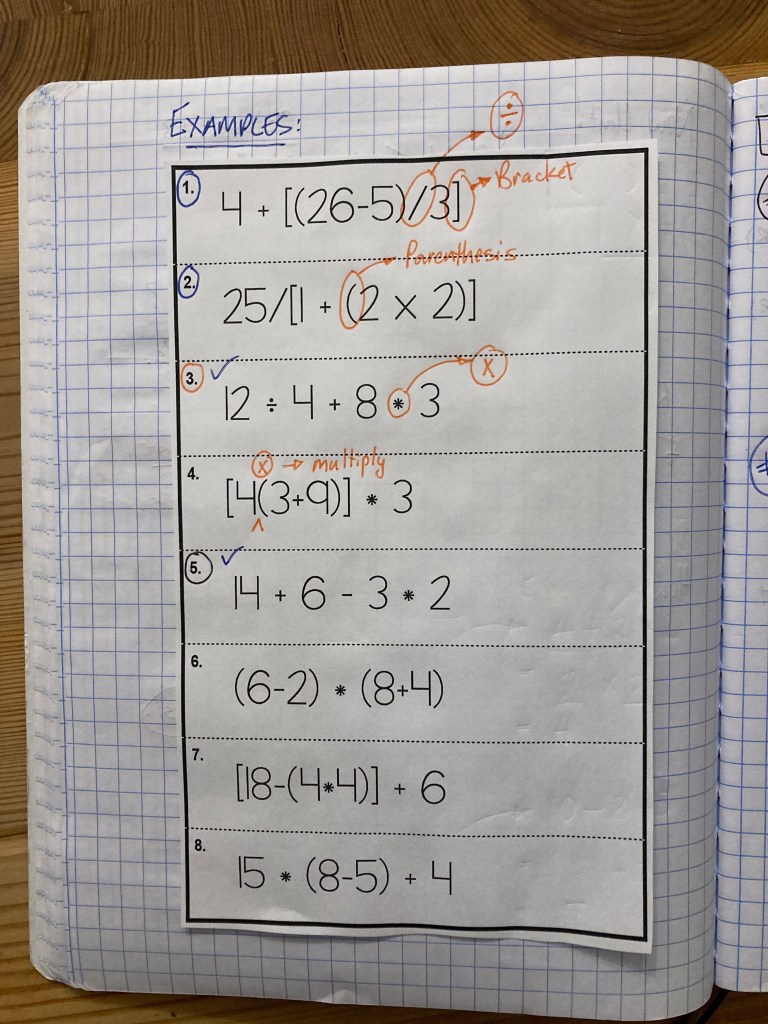 EXAMPLES:
÷
1. 4 + [(26-5)/3]
Bracket
Parenthesis
2. 25/[1 + (2 x 2)]
3. ✓
12 ÷ 4 + 8 * 3
x
4. x → multiply
[4(3+9)] * 3
^
5. ✓
14 + 6 - 3 * 2
6.
(6-2) * (8+4)
7.
[18-(4*4)] + 6
8.
15 * (8-5) + 4